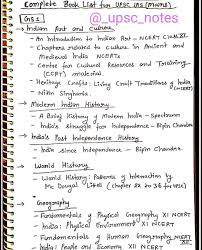 Complete Book List for UPSC IAS (Mains)
@upsc_notes
GS 1
→ Indian Art and Culture
- An Introduction to Indian Art - NCERT Class XI
- Chapters related to Culture in Ancient and
Medieval India NCERTs
- Centre for Cultural Resources and Training
(CCRT) material
- Heritage Crafts: Living Craft Traditions of India
- Nitin Singhania.
→ Modern Indian History
- A Brief History of Modern India - Spectrum
- India's struggle for Independence - Bipin Chandra
→ India's Post Independence History
- India since Independence - Bipin Chandra.
→ World History
- World History: Patterns of Interaction by
Mc Dougal Littell (Chapter 22 to 36 for UPSC)
→ Geography
- Fundamentals of Physical Geography XI NCERT
- India: Physical Environment XI NCERT
- Fundamentals of Human Geography NCERT XII
- India: People and Economy XII NCERT